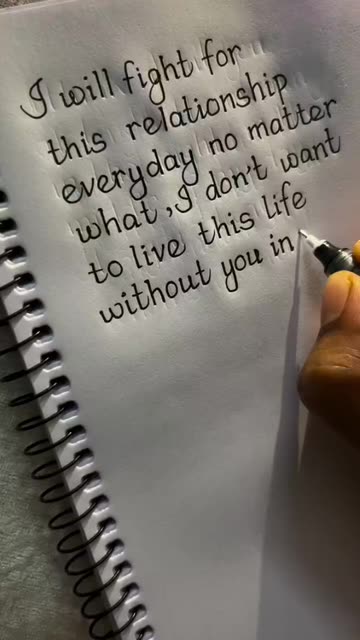 I will fight for
this relationship
everyday no matter
what, I don't want
to live this life
without you in